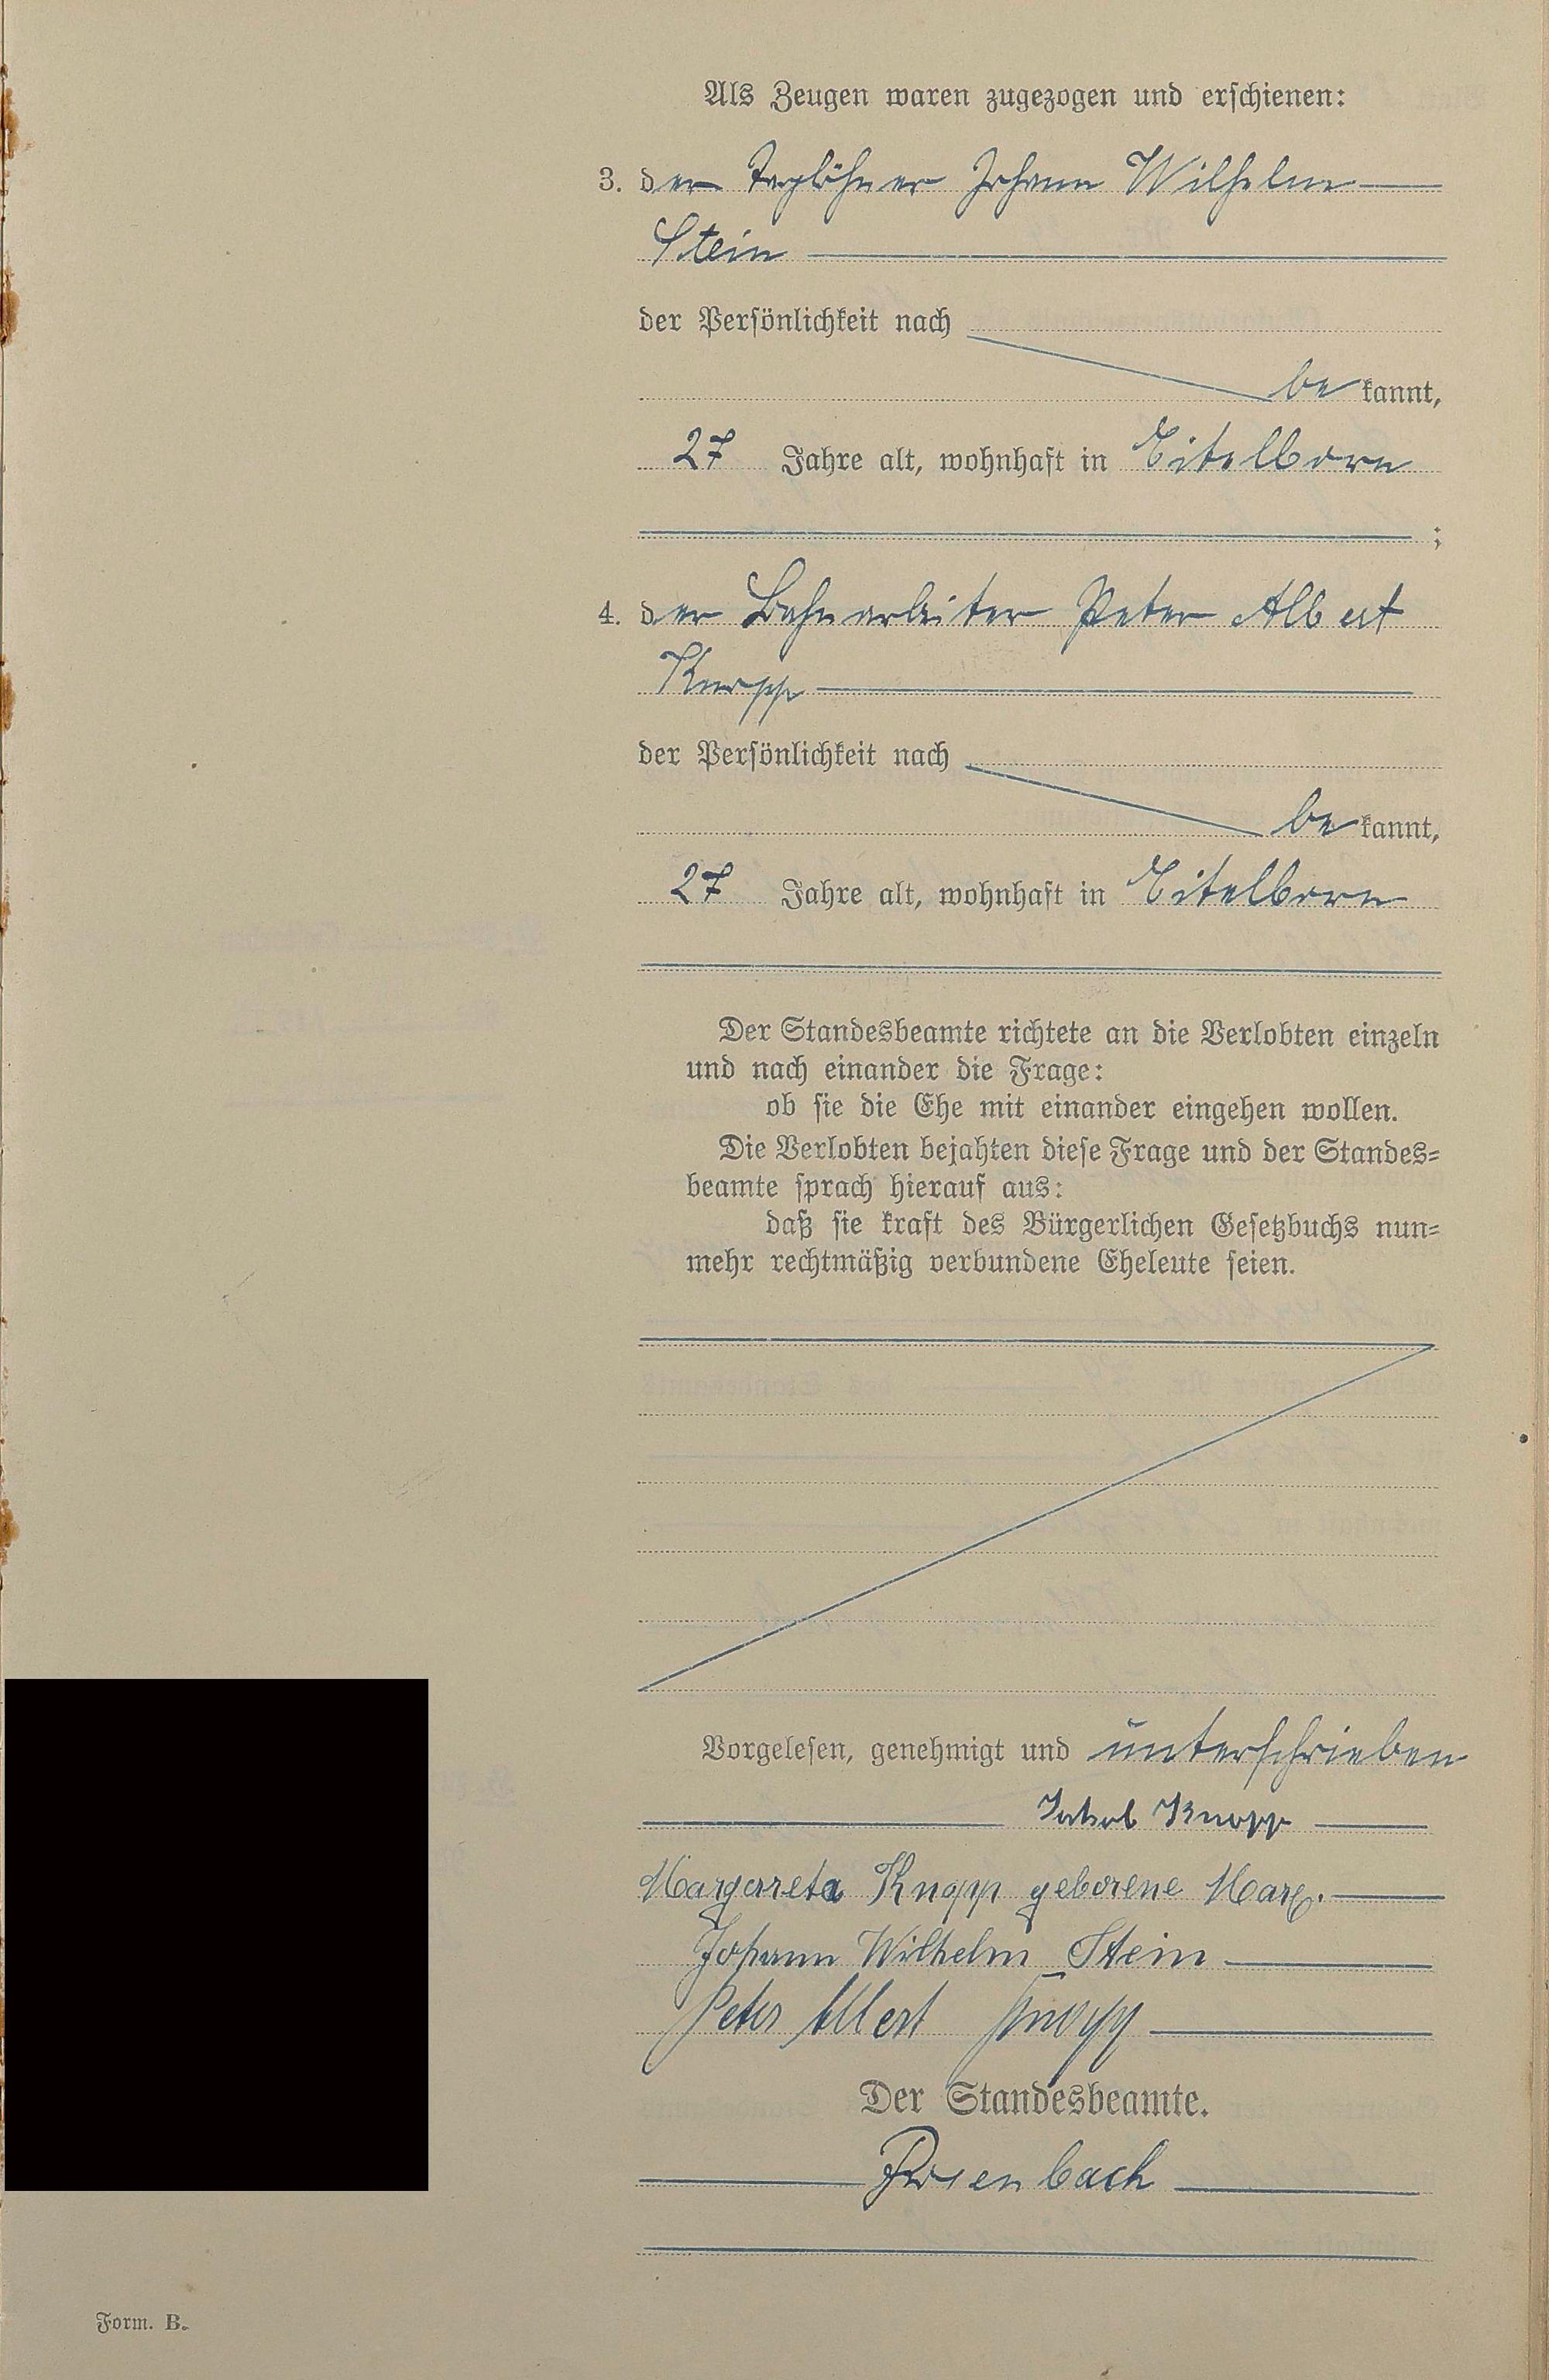 Als Zeugen waren zugezogen und erschienen:
3. der Taglöhner Johann Wilhelm
Stein
der Persönlichkeit nach
be kannt,
27 Jahre alt, wohnhaft in Eitelborn
;
4. der Bahnarbeiter Peter Albert
Knopp
der Persönlichkeit nach
be kannt,
27 Jahre alt, wohnhaft in Eitelborn
Der Standesbeamte richtete an die Verlobten einzeln
und nach einander die Frage:
ob sie die Ehe mit einander eingehen wollen.
Die Verlobten bejahten diese Frage und der Standes=
beamte sprach hierauf aus:
daß sie kraft des Bürgerlichen Gesetzbuchs nun=
mehr rechtmäßig verbundene Eheleute seien.
Vorgelesen, genehmigt und unterschrieben
Jakob Knopp
Margareta Knopp geborene Marx.
Johann Wilhelm Stein
Peter Albert Knopp
Der Standesbeamte.
Rosenbach
Form. B.